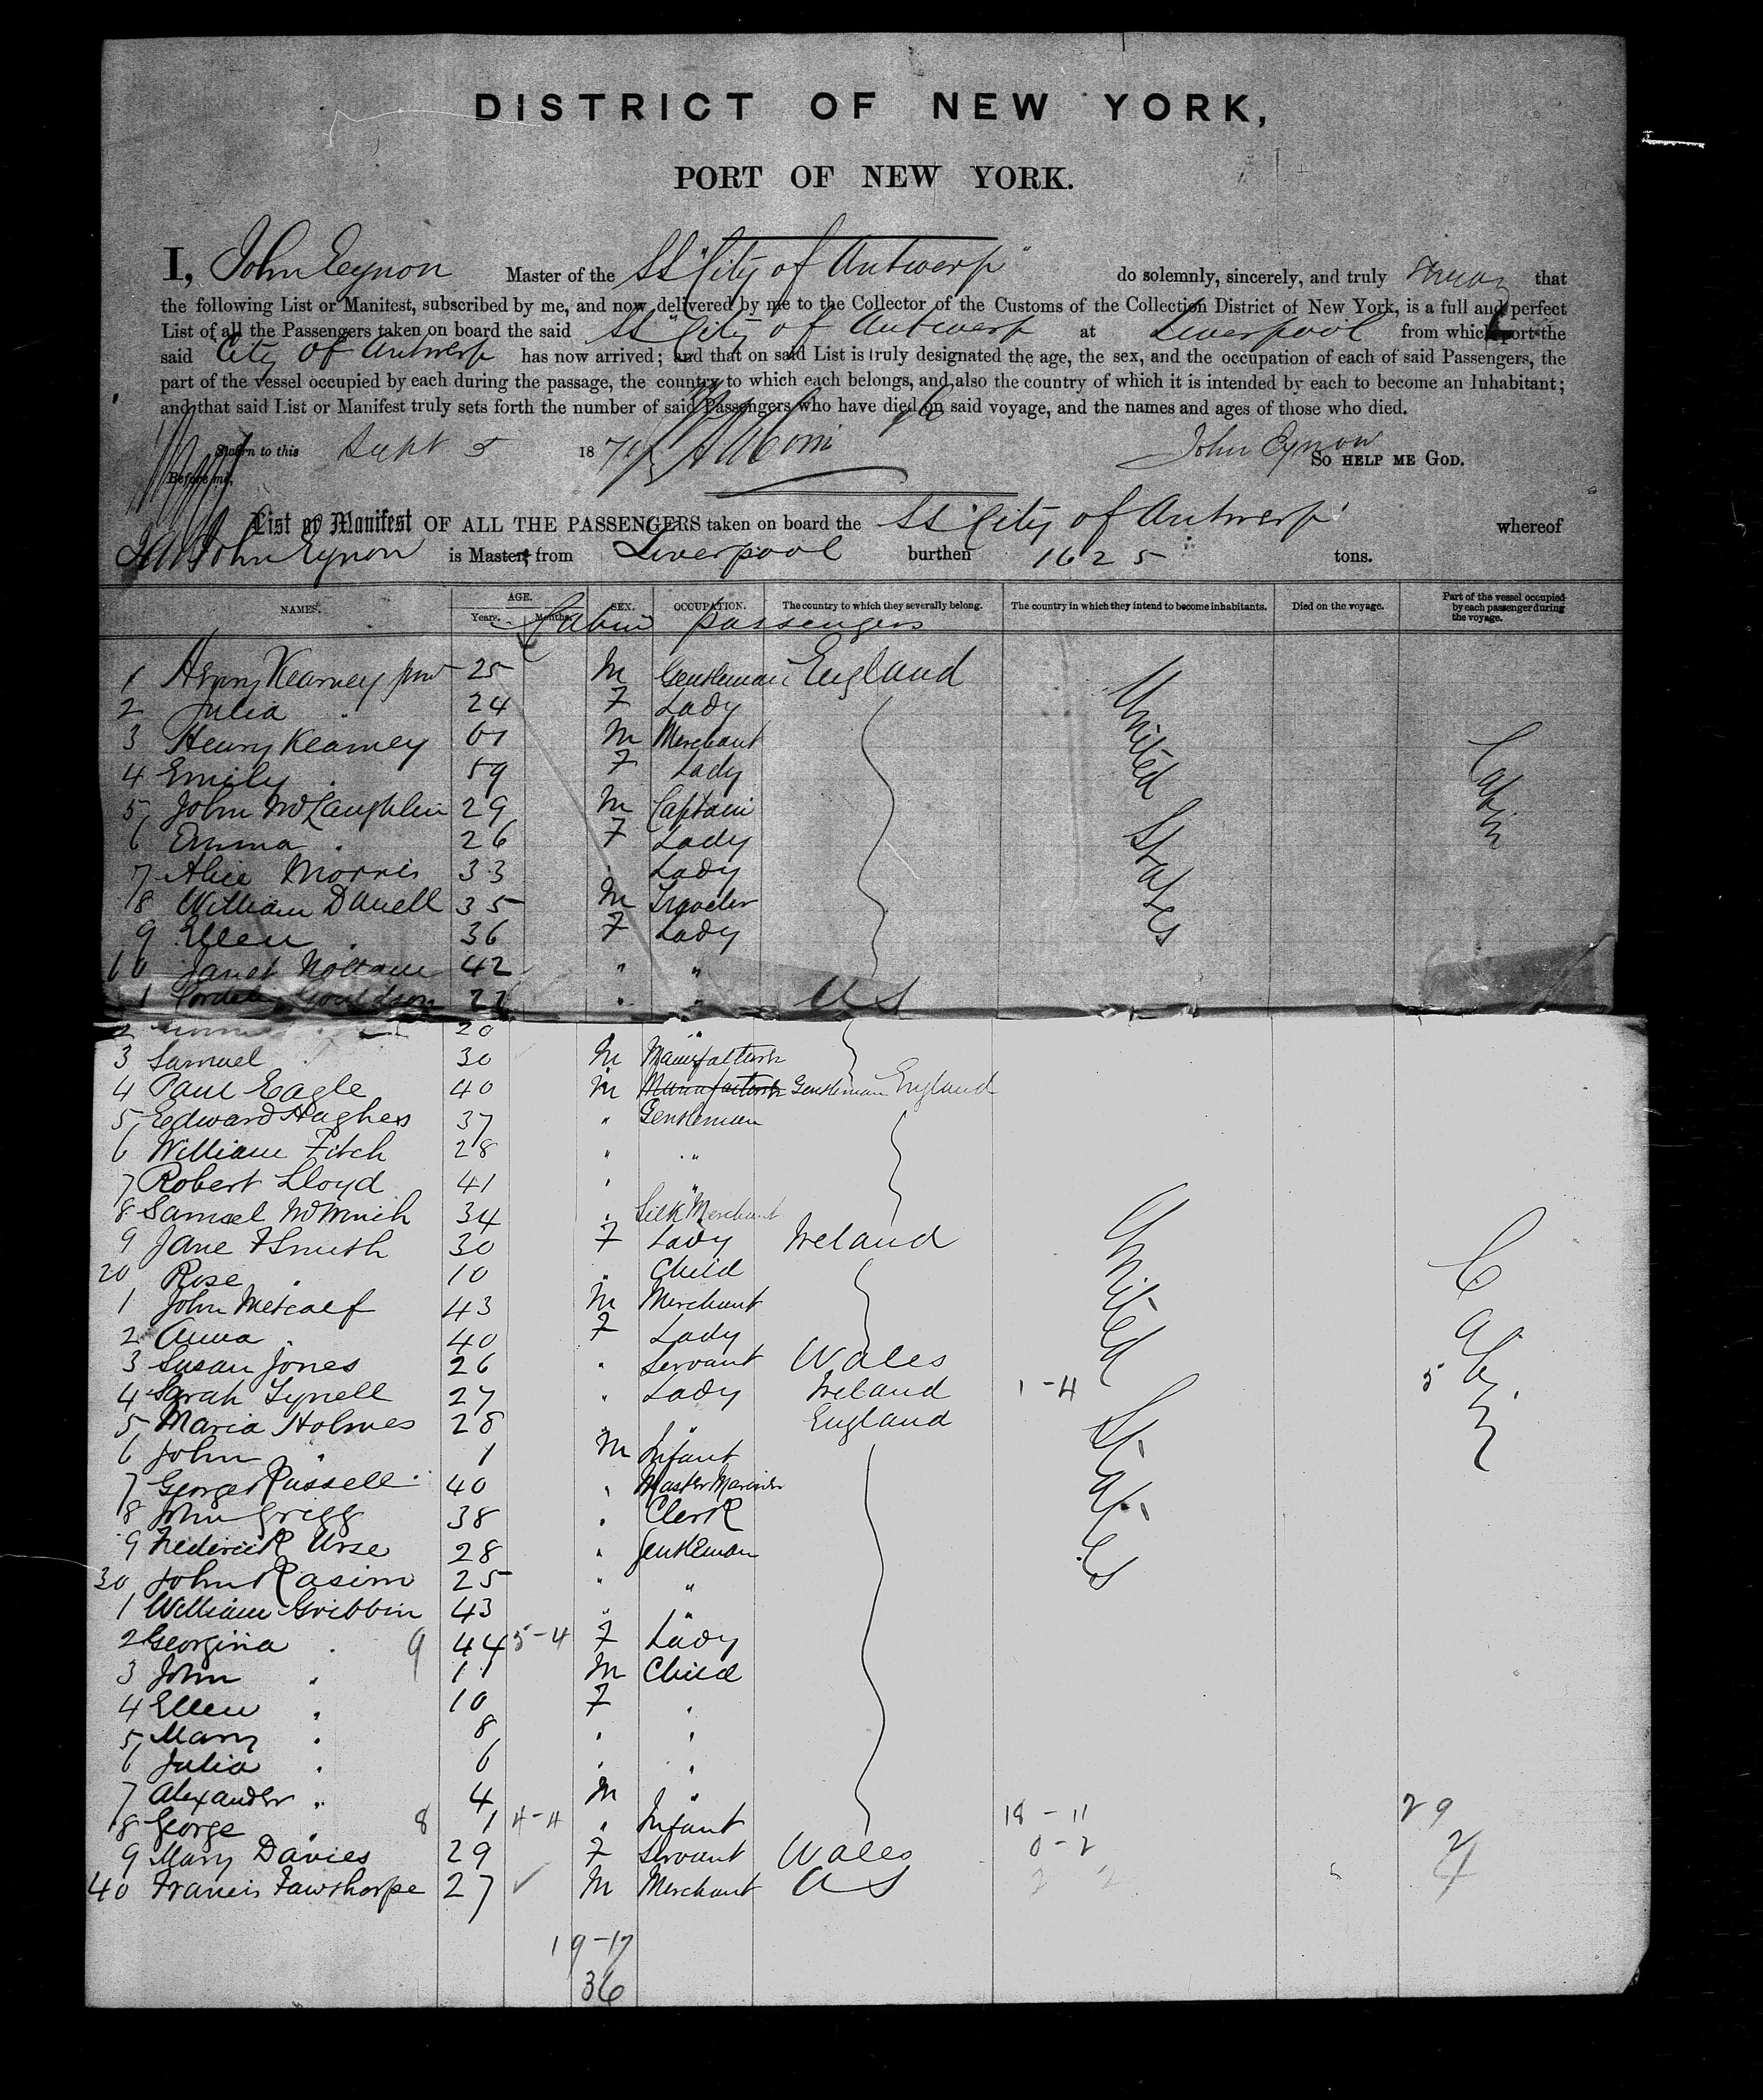 DISTRICT OF NEW YORK,
PORT OF NEW YORK.
I, John Eynon Master of the SS "City of Antwerp" do solemnly, sincerely, and truly swear that
the following List or Manifest, subscribed by me, and now delivered by me to the Collector of the Customs of the Collection District of New York, is a full and perfect
List of all the Passengers taken on board the said SS "City of Antwerp at Liverpool from which port the
said "City of Antwerp has now arrived; and that on said List is truly designated the age, the sex, and the occupation of each of said Passengers, the
part of the vessel occupied by each during the passage, the country to which each belongs, and also the country of which it is intended by each to become an Inhabitant;
and that said List or Manifest truly sets forth the number of said Passengers who have died on said voyage, and the names and ages of those who died.
Sworn to this Sept 5 187 John Eynon
SO HELP ME GOD.
Before me,
List or Manifest OF ALL THE PASSENGERS taken on board the SS "City of Antwerp" whereof
John Eynon is Master, from Liverpool burthen 1625 tons.
NAMES. AGE. Years. Months. SEX. OCCUPATION. The country to which they severally belong. The country in which they intend to become inhabitants. Died on the voyage. Part of the vessel occupied by each passenger during the voyage.
Cabin Passengers
1 Henry Kearney jun 25 M Gentleman England United States Cabin
2 Julia 24 F Lady
3 Henry Kearney 61 M Merchant
4 Emily 59 F Lady
5 John McLaughlin 29 M Captain
6 Emma 26 F Lady
7 Alice Morris 33 Lady
8 William Danell 35 M Traveler
9 Ellen 36 F Lady
10 Janet 42 " "
1 Cordelia Gouldson 22 " " U S
2 20 "
3 Samuel 30 M Manufacturer
4 Paul Eagle 40 M Manufacturer Gentleman England
5 Edward Hughes 37 " Gentleman
6 William Fitch 28 " "
7 Robert Lloyd 41 " "
8 Samuel 34 " Silk Merchant
9 Jane F Smith 30 F Lady Ireland United States Cabin
20 Rose " 10 " Child
1 John Metcalf 43 M Merchant
2 Anna " 40 F Lady
3 Susan Jones 26 " Servant Wales
4 Sarah Tynell 27 " Lady Ireland 1-4 5
5 Maria Holmes 28 " England
6 John " 1 M Infant
7 George Russell 40 " Master Mariner
8 John Grigg 38 " Clerk
9 Frederick Urse 28 " Gentleman
30 John Rasim 25 " "
1 William Gribbin 43 " "
2 Georgina " 9 44 5-4 F Lady
3 John " 11 M Child
4 Ellen " 10 F "
5 Mary " 8 " "
6 Julia " 6 " "
7 Alexander " 4 M "
8 George " 8 1 4-4 " Infant 18-11 29
9 Mary Davies 29 F Servant Wales 0-2 2
40 Francis Fawthorpe 27 M Merchant U S 4
19-17
36